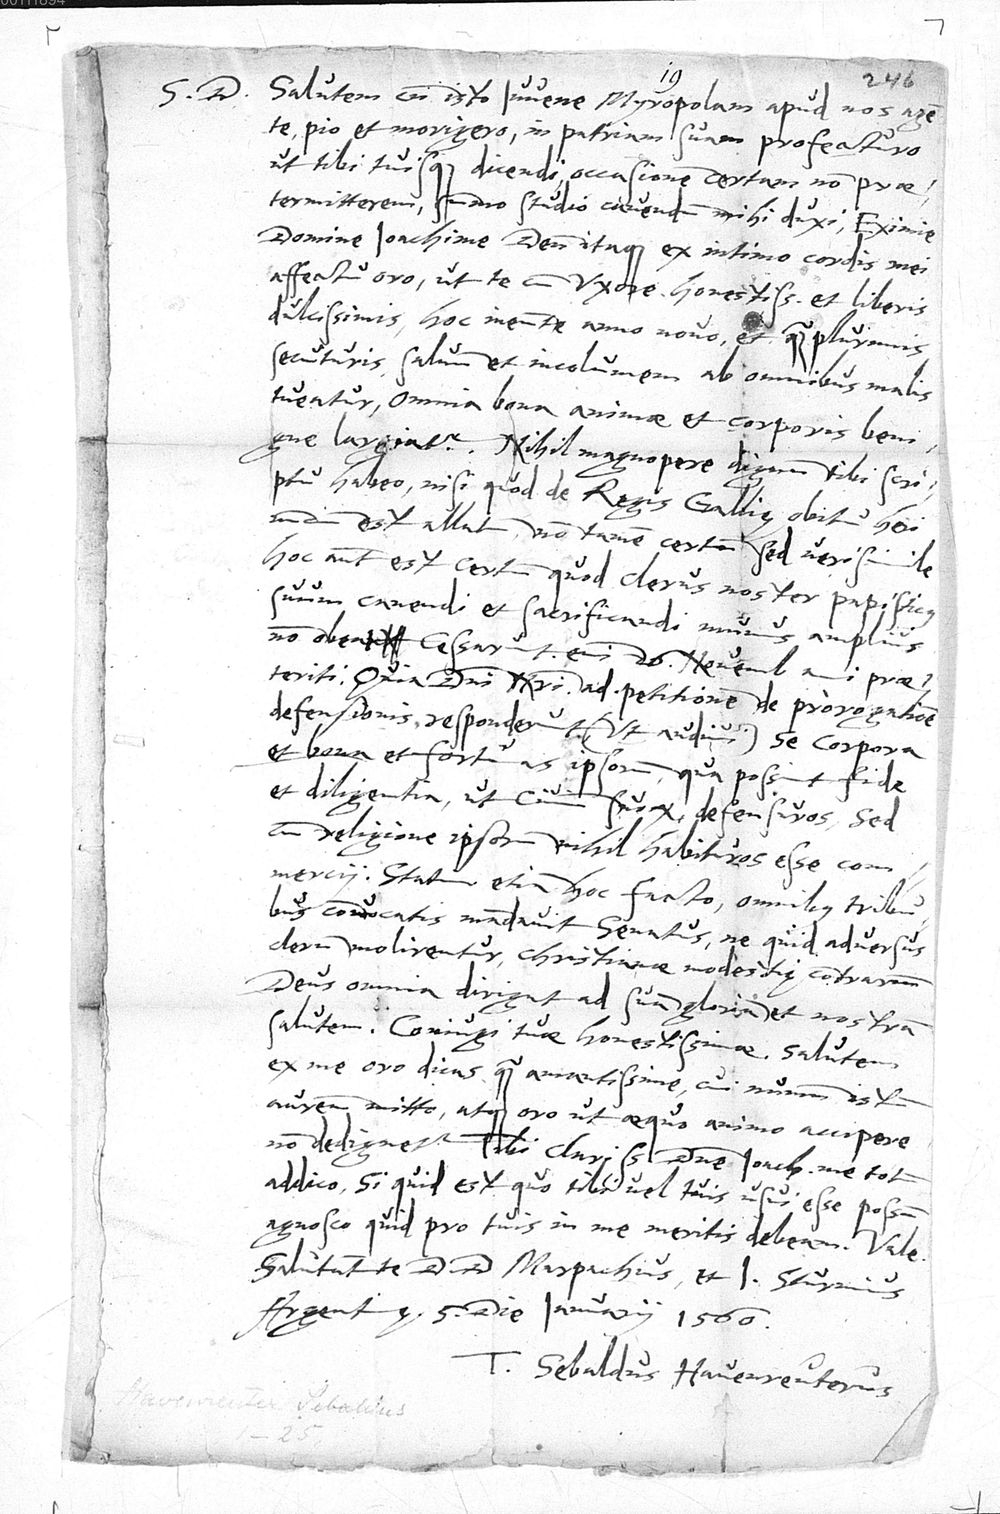 00111894
19
246
S. D. Salutem cũ isto Iuuene Myropolam apud nos agẽ
te, pio et morigero, in patriam suam profecturo
ut tibi tuisq₃ dicendi, occasionẽ certam nõ præ/
termitterem, sum̃o studio cauendũ mihi duxi, Eximie
Domine Ioachime Deũ itaq₃ ex intimo cordis mei
affectu oro, ut te cũ Vxore honestiss. et liberis
dulcissimis, hoc ineunte anno nouo, et q̃plurimis
secuturis, saluũ et incolumem ab omnibus malis
tueatur, omnia bona animæ et corporis beni/
gne largiatr. Nihil magnopere dignum tibi scri/
ptu habeo, nisi quod de Regis Gallię obitu heri
est allatũ, nõ tamẽ certũ sed uerisimile
hoc aũt est certũ quod clerus noster papisticus
suum canendi et sacrificandi munus amplius
nõ Cessarũt. eñi 26. Nouemb añi præ/
teriti: Quia Dñi Nri. ad petitionẽ de prorogatiõe
defensionis responderũt (Vt audiui) se Corpora
et bona et fortunas ipsorũ, qua possint fide
et diligentia, ut Ciuiũ suorum, defensuros, Sed
cũ religione ipsorũ nihil habituros esse com/
mercij. Statim etiã hoc facto, omnibus tribu/
bus conuocatis mãdauit Senatus, ne quid aduersus
clerũ molirentur, christianæ modestię cõtrariũ
Deus omnia dirigat ad suã gloriã et nostrã
salutem. Coniugi tuæ honestissimæ. salutem
ex me oro dicas q̃ amantissime, cui nummũ istũ
aureũ mitto, atq₃ oro ut æquo animo accipere
nõ dedignetr. Tibi Clariss. Dñe Ioach. me totũ
addico, Si quid est quo tibi uel tuis usui esse possũ
agnosco quid pro tuis in me meritis debeam. Vale.
Salutãt te D. D Marpachius, et I. Sturmius
Argentinę, 5. Die Ianuarij 1560.
T. Sebaldus Hauenreuterus
Havenreuter Sebaldus
1-25.